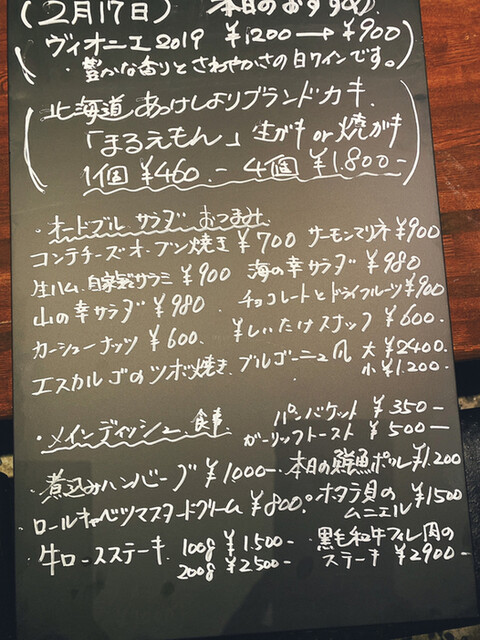 (2月17日) 本日のおすすめ
ヴィオニエ2019 ¥1200→¥900
・豊かな香りとさわやかさの白ワインです。
北海道あっけしよりブランドカキ.
「まるえもん」生ガキor焼ガキ
1個¥460.- 4個¥1.800-
・オードブル サラダ おつまみ
コンテチーズオーブン焼き¥700 サーモンマリネ¥900
生ハム.自家製サラミ¥900 海の幸サラダ ¥980
山の幸サラダ¥980. チョコレートとドライフルーツ¥900
カシューナッツ¥600. しいたけスナック¥600.
エスカルゴのツボ焼き.ブルゴーニュ風 大¥2400.
小¥1.200.
・メインディッシュ.食事
パンバケット ¥350-
ガーリックトースト ¥500-
・煮込みハンバーグ¥1000-
・本日の鮮魚ポワレ¥1,200
・ロールキャベツマスタードクリーム¥800.
・ホタテ貝のムニエル ¥1500
・牛ロースステーキ 100g ¥1.500-
200g ¥2500-
・黒毛和牛フィレ肉の
ステーキ ¥2900-